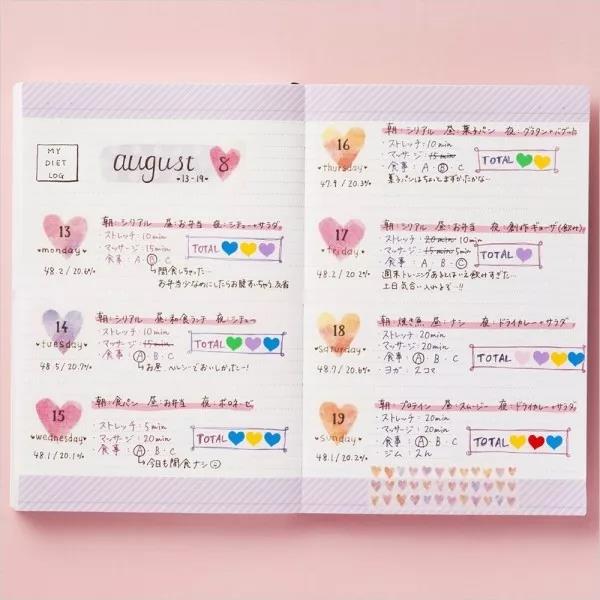 MY
DIET
LOG
august 8
•13-19•
13
monday
48.2 / 20.6%
朝:シリアル 昼:お弁当 夜:シチュー+サラダ
・ストレッチ:10min
・マッサージ:15min
・食事:A・B・C
間食しちゃった…
お弁当少なめにしたらお腹すいちゃう。反省
TOTAL
14
tuesday
48.5 / 20.7%
朝:シリアル 昼:和食ランチ 夜:シチュー
・ストレッチ:10min
・マッサージ:15min
・食事:A・B・C
お昼ヘルシーでおいしかったー!
TOTAL
15
wednesday
48.1 / 20.1%
朝:食パン 昼:お弁当 夜:ボロネーゼ
・ストレッチ:5min
・マッサージ:20min
・食事:A・B・C
今日も間食ナシ
TOTAL
16
thursday
47.9 / 20.3%
朝:シリアル 昼:菓子パン 夜:グラタン+バゲット
・ストレッチ:10min
・マッサージ:15min
・食事:A・B・C
菓子パンはちょっとまずかたかな…
TOTAL
17
friday
48.2 / 20.2%
朝:シリアル 昼:お弁当 夜:創作ギョーザ(飲み)
・ストレッチ:20min 10min
・マッサージ:15min 5min
・食事:A・B・C
週末トレーニングあるとはいえ飲みすぎた…
土日気合い入れるぞ!!
TOTAL
18
saturday
48.7 / 20.6%
朝:焼き魚 昼:ナシ 夜:ドライカレー+サラダ
・ストレッチ:20min
・マッサージ:20min
・食事:A・B・C
・ヨガ:2コマ
TOTAL
19
sunday
48.1 / 20.2%
朝:プロテイン 昼:スムージー 夜:ドライカレー+サラダ
・ストレッチ:20min
・マッサージ:20min
・食事:A・B・C
・ジム:
TOTAL